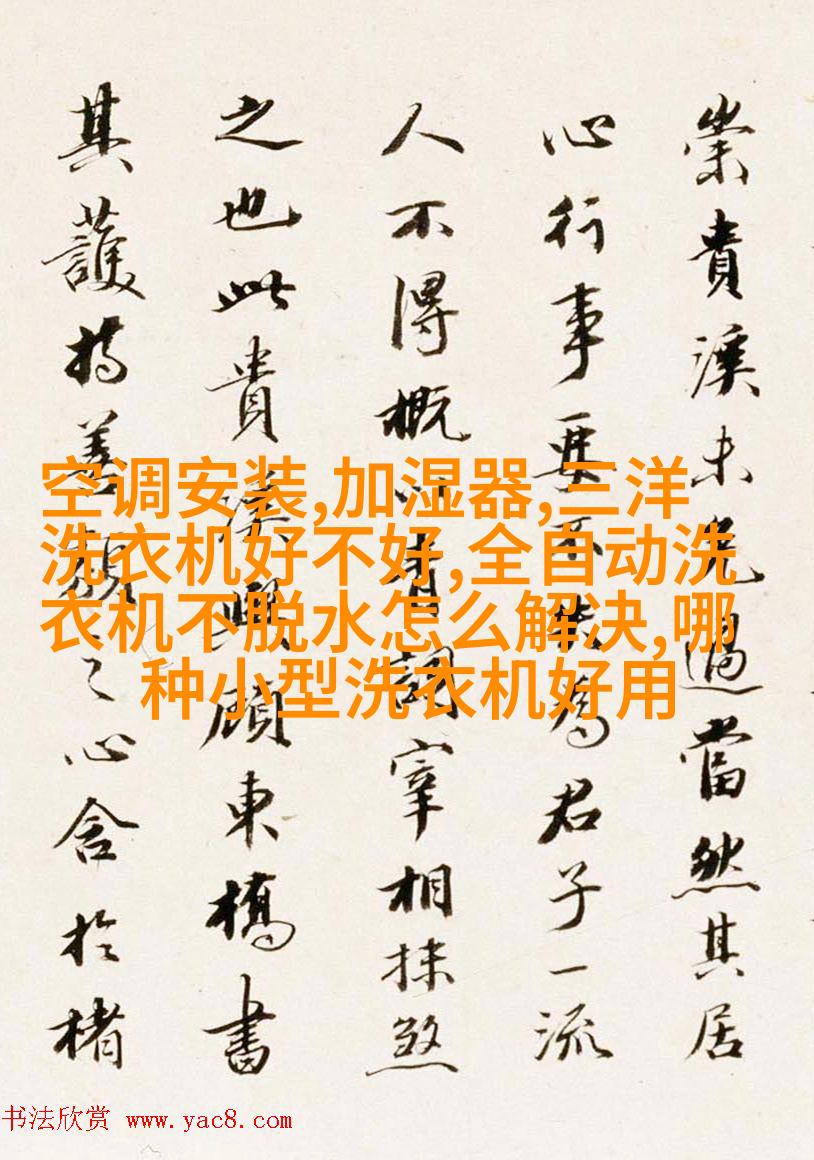 崇貴溪未免過當然其居
心行事要不失為君子一流
人不得概以青詞宰相抹煞
之也此貴溪與顧東橋書
其護持善類之心含於楮
空调安装,加湿器,三洋
洗衣机好不好,全自动洗
衣机不脱水怎么解决,哪
种小型洗衣机好用
书法欣赏 www.yac8.com